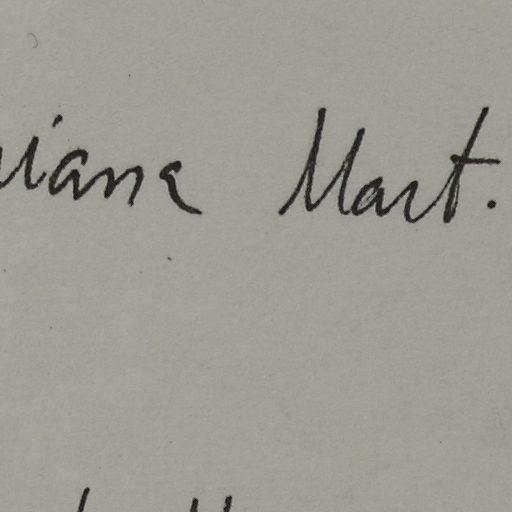 iana Mart.